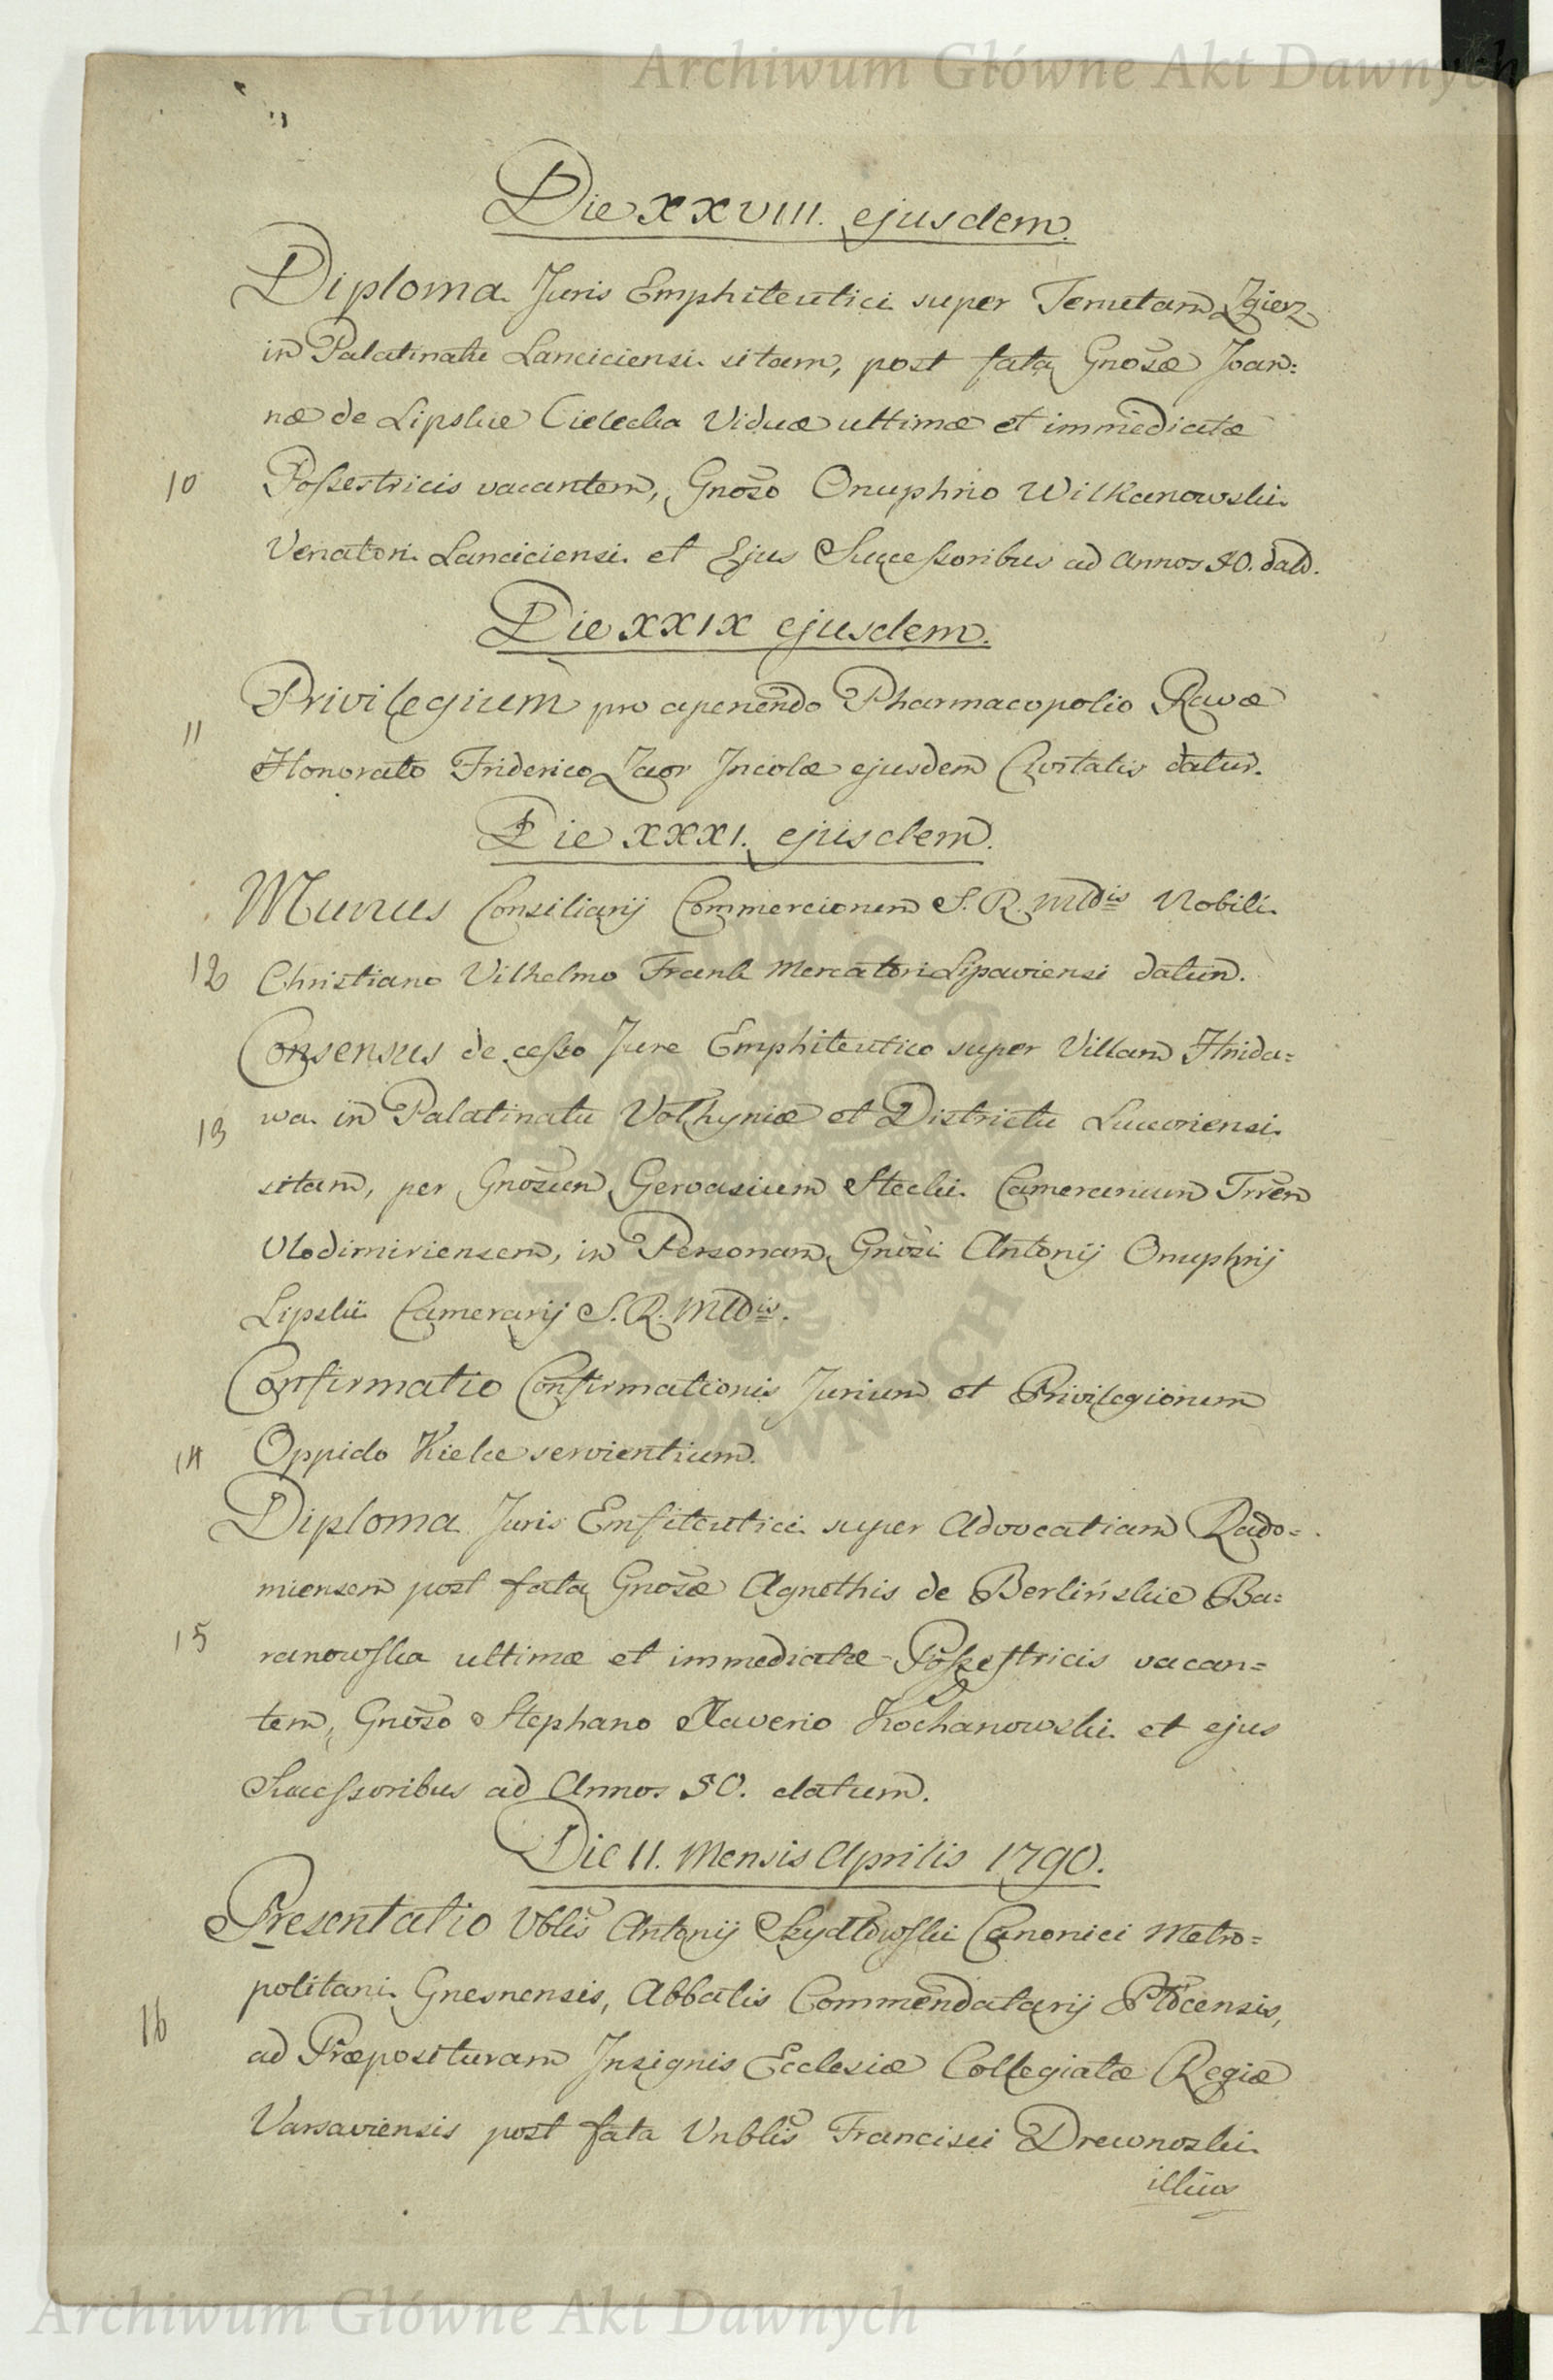 Archiwum Główne Akt Dawnych
Die XXVIII. ejusdem.
Diploma Juris Emphiteutici super Tenutam Zgierz
in Palatinatu Lanciciensi sitam, post fata Gnosæ Joan=
næ de Lipskie Cielecka Viduæ ultimæ et immediatæ
10 Possestricis vacantem, Gnoso Onuphrio Wilkanowski
Venatori Lanciciensi et Ejus Successoribus ad Annos 50. datd.
Die XXIX ejusdem.
Privilegium pro aperiendo Pharmacopolio Ravæ
11
Honorato Friderico Zaor Incolæ ejusdem Civitatis datur.
Die XXXI. ejusdem.
Munus Consiliarij Commerciorum S. R. Mtdis Nobili
12 Christiano Vilhelmo Frank Mercatori Lipaviensi datum.
Consensus de cesso Jure Emphiteutico super Villam Hnida=
13 wa in Palatinatu Volhyniæ et Districtu Luceoriensi
sitam, per Gnosum Gervasium Stecki Camerarium Trren
Vlodimiriensem, in Personam Gnosi Antonij Onuphrij
Lipskii Camerarij S. R. Mtdis.
Confirmatio Confirmationis Jurium et Privilegiorum
14 Oppido Kielce servientium.
Diploma Juris Emfiteutici super Advocatiam Rado=
miensem post fata Gnosæ Agnethis de Berlińskie Ba=
15 ranowska ultimæ et immediatæ Possestricis vacan=
tem, Gnoso Stephano Xaverio Kochanowski et ejus
Successoribus ad Annos 50. datum.
Die II. Mensis Aprilis 1790.
Presentatio Vblis Antonij Szydłowski Canonici Metro=
politani Gnesnensis, Abbatis Commendatarij Plocensis,
16 ad Præposituram Insignis Ecclesiæ Collegiatæ Regiæ
Varsaviensis post fata Vnblis Francisci Drewnoski
illius
Archiwum Główne Akt Dawnych